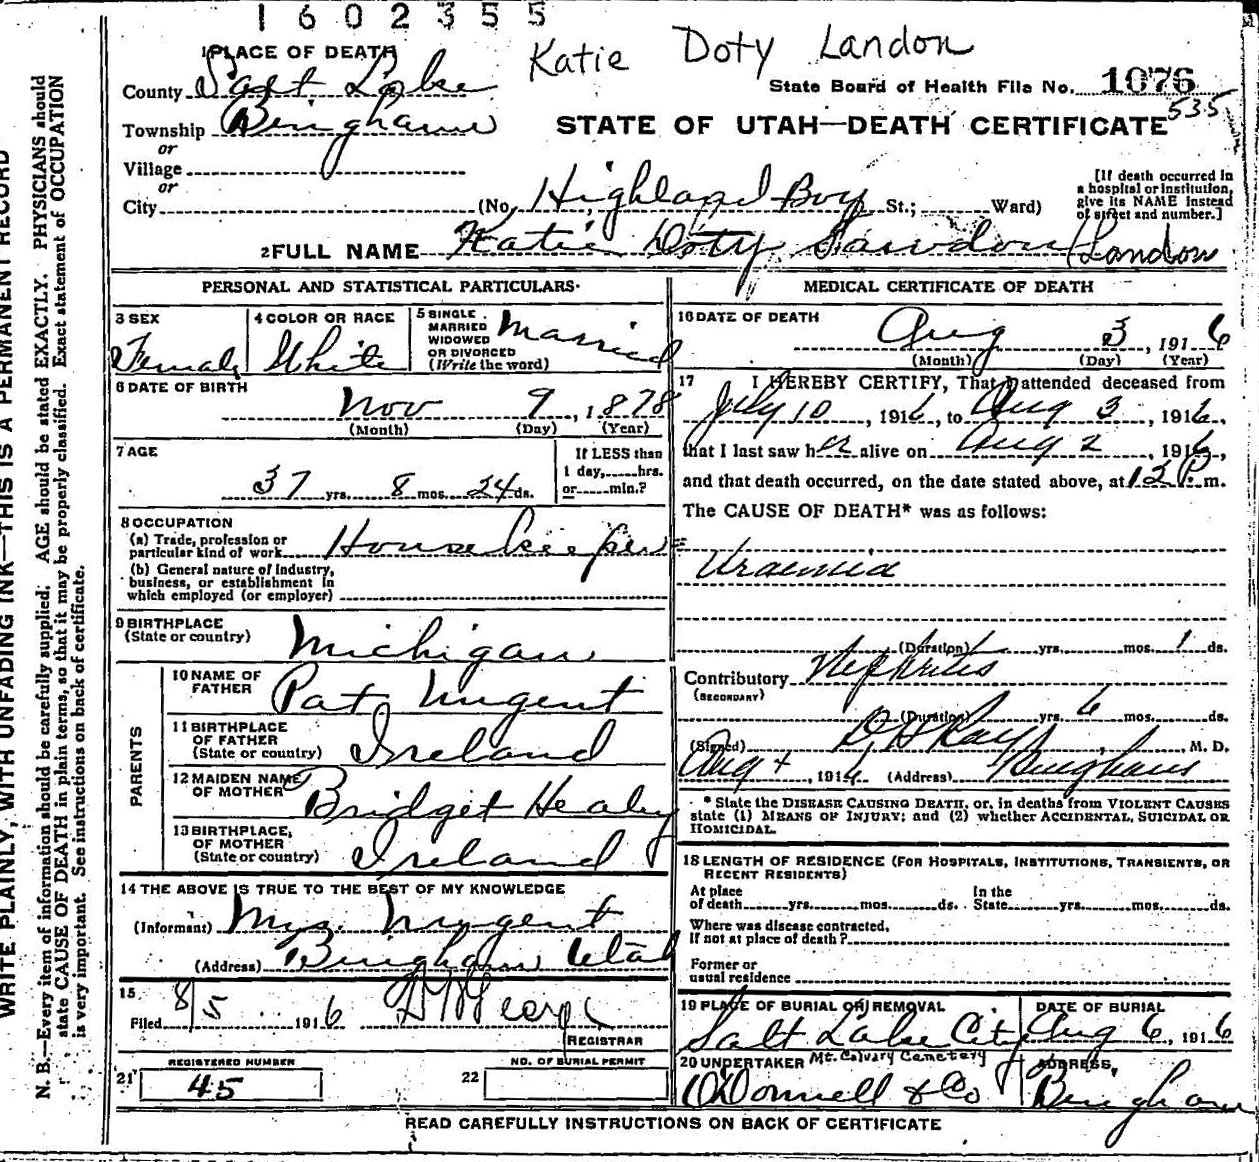 1602355
1 PLACE OF DEATH
Katie Doty Landon
County Salt Lake
State Board of Health File No. 1076
535
Township Bingham
STATE OF UTAH—DEATH CERTIFICATE
or
Village
or
City (No. Highland Boy St.; Ward)
[If death occurred in
a hospital or institution,
give its NAME instead
of street and number.]
2 FULL NAME Katie Doty (Landon
PERSONAL AND STATISTICAL PARTICULARS
3 SEX
Female
4 COLOR OR RACE
White
5 SINGLE
MARRIED
WIDOWED
OR DIVORCED
(Write the word)
Married
6 DATE OF BIRTH
Nov 9, 1878
(Month) (Day) (Year)
7 AGE
37 yrs. 8 mos. 24 ds.
If LESS than
1 day, hrs.
or min.?
8 OCCUPATION
(a) Trade, profession or
particular kind of work Housekeeper
(b) General nature of industry,
business, or establishment in
which employed (or employer)
9 BIRTHPLACE
(State or country) Michigan
PARENTS
10 NAME OF
FATHER Pat Nugent
11 BIRTHPLACE
OF FATHER
(State or country) Ireland
12 MAIDEN NAME
OF MOTHER Bridget Healey
13 BIRTHPLACE
OF MOTHER
(State or country) Ireland
14 THE ABOVE IS TRUE TO THE BEST OF MY KNOWLEDGE
(Informant) Mrs. Nugent
(Address) Bingham Utah
15
Filed 8/5 1916
REGISTRAR
REGISTERED NUMBER
21 45
NO. OF BURIAL PERMIT
22
MEDICAL CERTIFICATE OF DEATH
16 DATE OF DEATH
Aug 3, 1916
(Month) (Day) (Year)
17 I HEREBY CERTIFY, That I attended deceased from
July 10, 1916, to Aug 3, 1916,
that I last saw her alive on Aug 2, 1916,
and that death occurred, on the date stated above, at 12 P. m.
The CAUSE OF DEATH* was as follows:
Uraemia
(Duration) yrs. mos. 1 ds.
Contributory Nephritis
(SECONDARY)
(Duration) yrs. 6 mos. ds.
(Signed) D H Ray, M. D.
Aug 4, 1916 (Address) Bingham
* State the DISEASE CAUSING DEATH, or, in deaths from VIOLENT CAUSES
state (1) MEANS OF INJURY; and (2) whether ACCIDENTAL, SUICIDAL OR
HOMICIDAL.
18 LENGTH OF RESIDENCE (FOR HOSPITALS, INSTITUTIONS, TRANSIENTS, OR
RECENT RESIDENTS)
At place
of death yrs. mos. ds.
In the
State yrs. mos. ds.
Where was disease contracted,
If not at place of death?
Former or
usual residence
19 PLACE OF BURIAL OR REMOVAL
Salt Lake City
DATE OF BURIAL
Aug 6, 1916
20 UNDERTAKER Mt. Calvary Cemetery
O'Donnell & Co
ADDRESS,
Bingham
READ CAREFULLY INSTRUCTIONS ON BACK OF CERTIFICATE
WRITE PLAINLY, WITH UNFADING INK—THIS IS A PERMANENT RECORD
N. B.—Every item of information should be carefully supplied. AGE should be stated EXACTLY. PHYSICIANS should
state CAUSE OF DEATH in plain terms, so that it may be properly classified. Exact statement of OCCUPATION
is very important. See instructions on back of certificate.